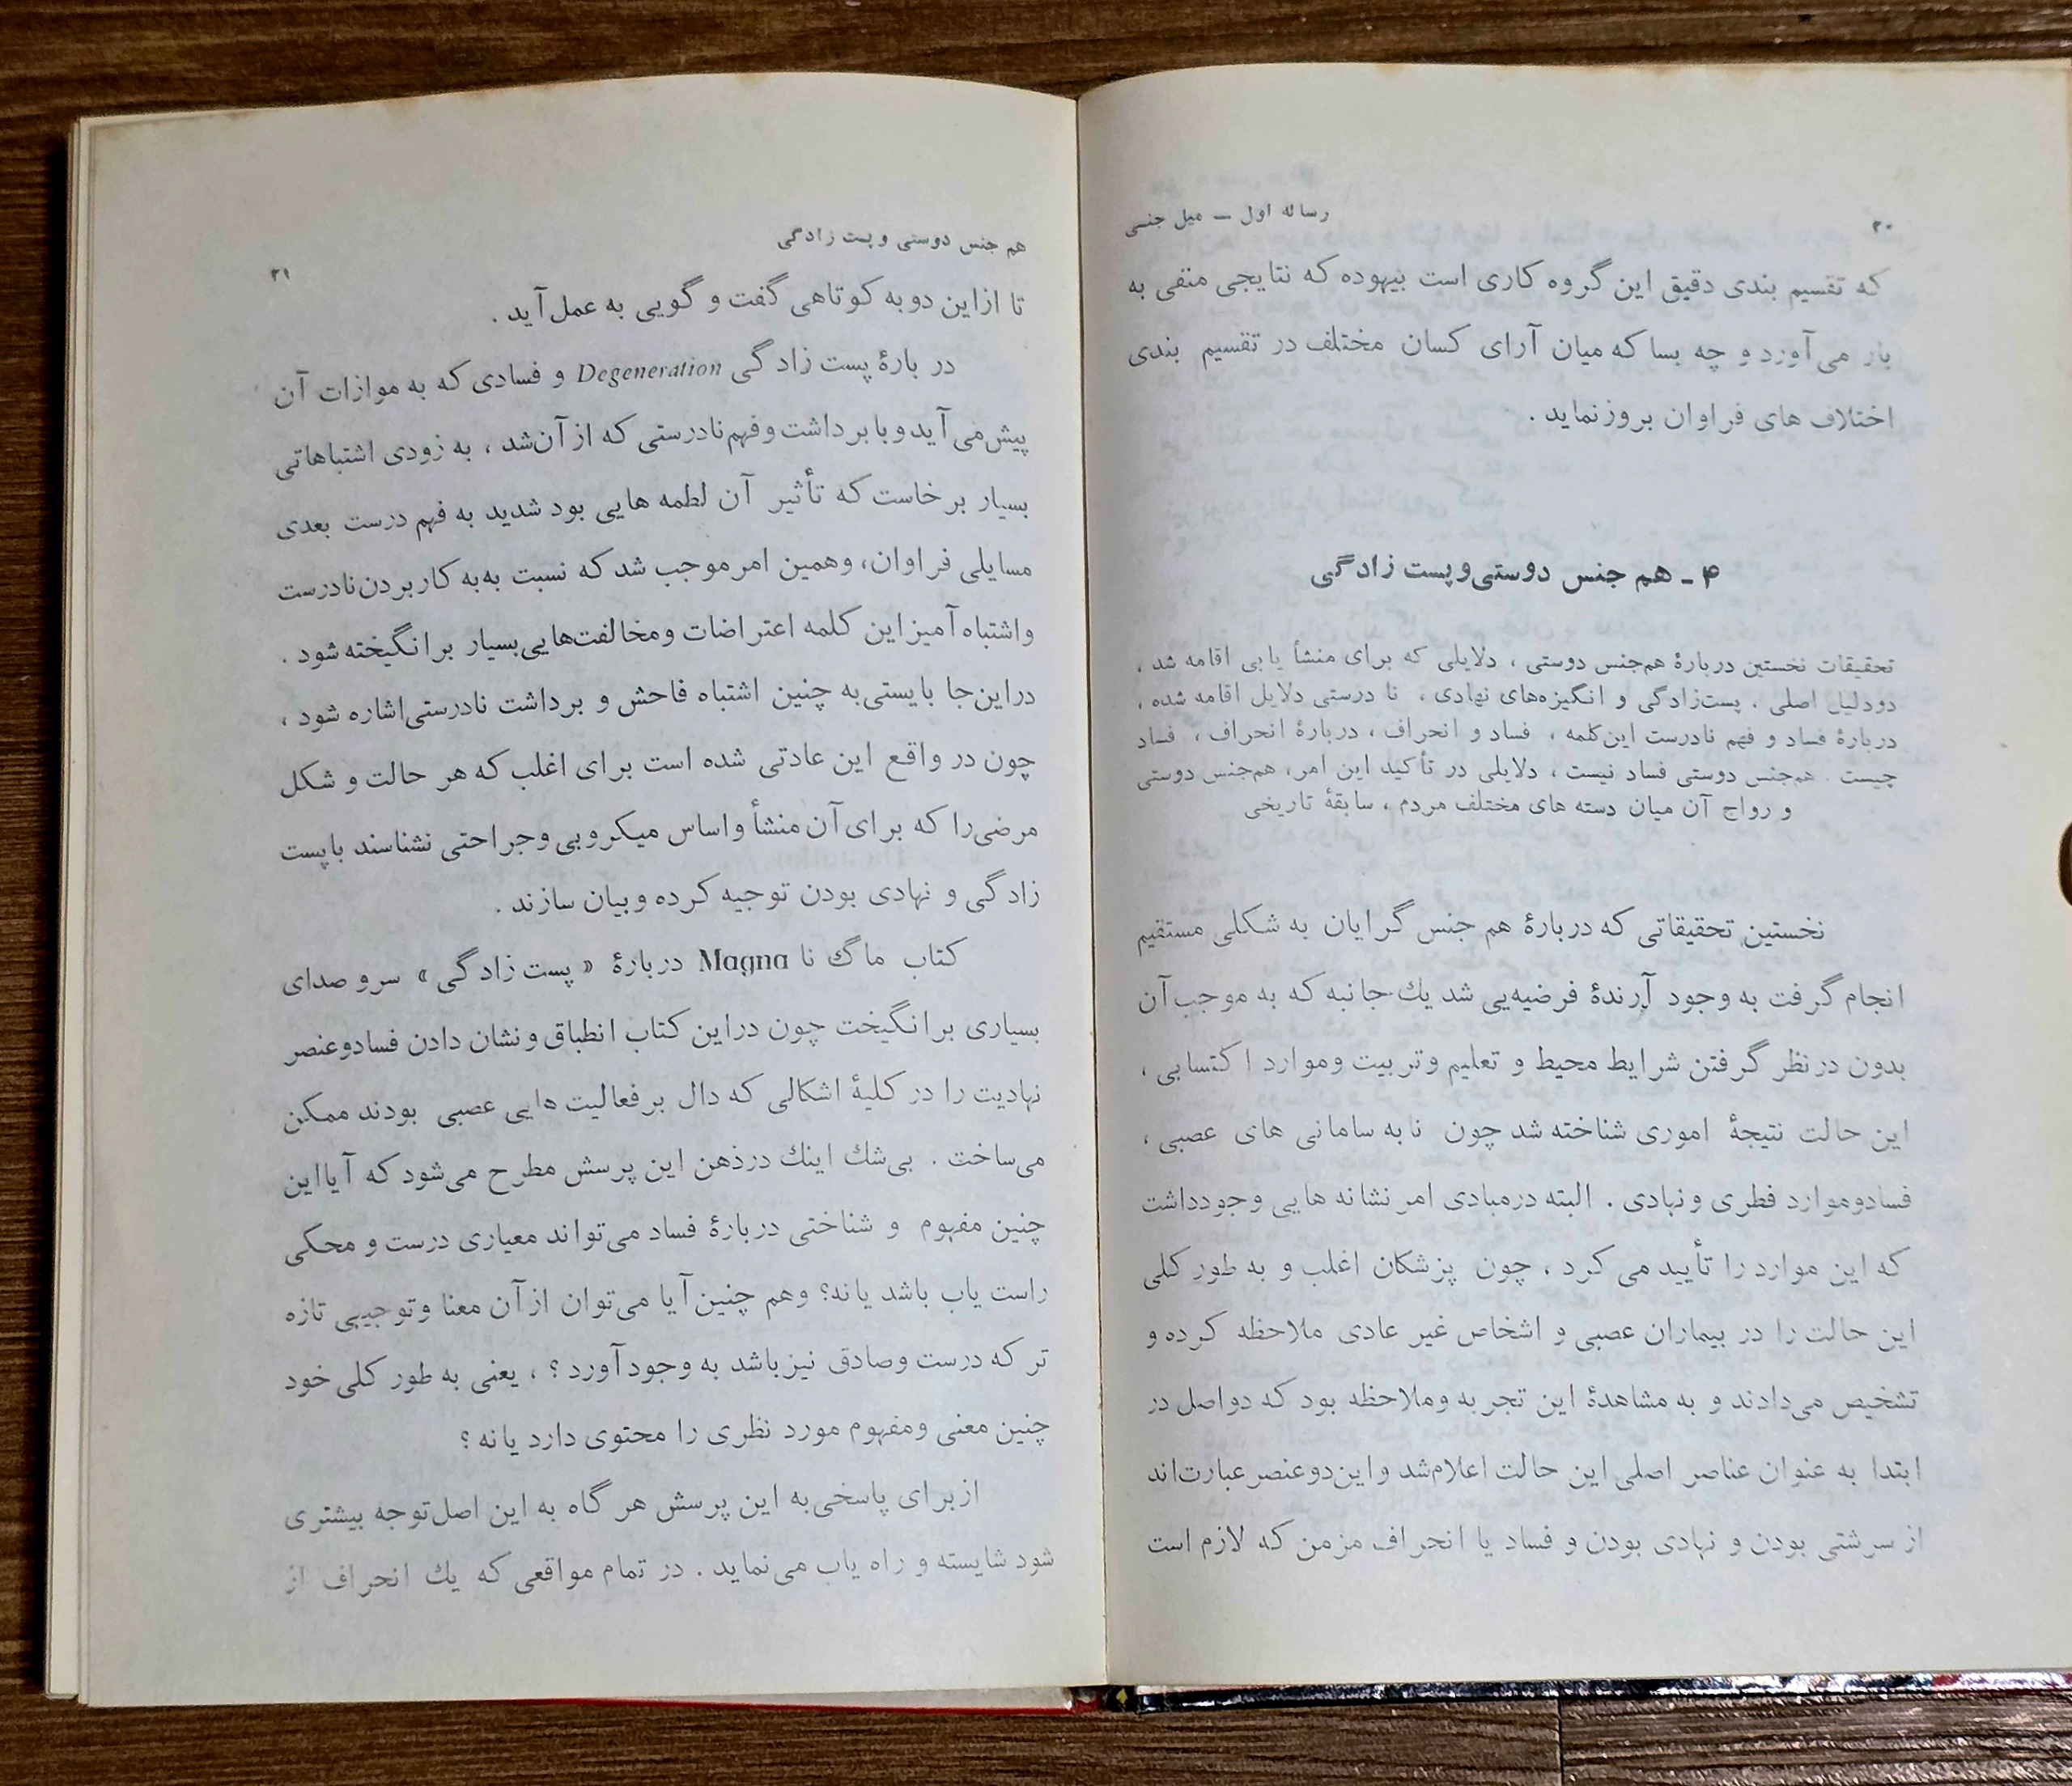 ۲۰
رساله اول — میل جنسی
که تقسیم بندی دقیق این گروه کاری است بیهوده که نتایجی منفی به
بار می‌آورد و چه بسا که میان آرای کسان مختلف در تقسیم بندی
اختلاف های فراوان بروز نماید .
۴ ـ هم جنس دوستی و پست زادگی
تحقیقات نخستین دربارهٔ هم‌جنس دوستی ، دلایلی که برای منشأ یابی اقامه شد ،
دودلیل اصلی . پست‌زادگی و انگیزه‌های نهادی ، نا درستی دلایل اقامه شده ،
دربارهٔ فساد و فهم نادرست این‌کلمه ، فساد و انحراف ، دربارهٔ انحراف ، فساد
چیست . هم‌جنس دوستی فساد نیست ، دلایلی در تأکید این امر، هم‌جنس دوستی
و رواج آن میان دسته های مختلف مردم ، سابقهٔ تاریخی
نخستین تحقیقاتی که دربارهٔ هم جنس گرایان به شکلی مستقیم
انجام گرفت به وجود آرندهٔ فرضیه‌یی شد یك جانبه که به موجب آن
بدون درنظر گرفتن شرایط محیط و تعلیم وتربیت وموارد اکتسابی ،
این حالت نتیجهٔ اموری شناخته شد چون نابه سامانی های عصبی ،
فسادوموارد فطری ونهادی . البته درمبادی امر نشانه هایی وجودداشت
که این موارد را تأیید می کرد ، چون پزشکان اغلب و به طور کلی
این حالت را در بیماران عصبی و اشخاص غیر عادی ملاحظه کرده و
تشخیص می‌دادند و به مشاهدهٔ این تجربه وملاحظه بود که دواصل در
ابتدا به عنوان عناصر اصلی این حالت اعلام‌شد واین‌دوعنصر عبارت‌اند
از سرشتی بودن و نهادی بودن و فساد یا انحراف مزمن که لازم است
هم جنس دوستی و پست زادگی
۲۱
تا ازاین دوبه کوتاهی گفت و گویی به عمل‌آید .
در بارهٔ پست زادگی Degeneration و فسادی که به موازات آن
پیش‌می‌آید وبا برداشت وفهم‌نادرستی که ازآن‌شد ، به زودی اشتباهاتی
بسیار برخاست که تأثیر آن لطمه هایی بود شدید به فهم درست بعدی
مسایلی فراوان، وهمین امرموجب شد که نسبت به‌به کاربردن‌نادرست
واشتباه‌آمیزاین کلمه اعتراضات ومخالفت‌هایی‌بسیار برانگیخته شود .
دراین‌جا بایستی‌به چنین اشتباه فاحش و برداشت نادرستی‌اشاره شود ،
چون در واقع این عادتی شده است برای اغلب که هر حالت و شکل
مرضی‌را که برای‌آن منشأ واساس میکروبی وجراحتی نشناسند باپست
زادگی و نهادی بودن توجیه کرده وبیان سازند .
کتاب ماگ نا Magna دربارهٔ « پست زادگی » سرو صدای
بسیاری برانگیخت چون دراین کتاب انطباق ونشان دادن فسادوعنصر
نهادیت را در کلیهٔ اشکالی که دال برفعالیت هایی عصبی بودند ممکن
می‌ساخت . بی‌شك اینك درذهن این پرسش مطرح می‌شود که آیااین
چنین مفهوم و شناختی دربارهٔ فساد می‌تواند معیاری درست و محکی
راست یاب باشد یانه؟ وهم چنین‌آیا می‌توان ازآن معنا وتوجیهی تازه
تر که درست وصادق نیزباشد به وجودآورد ؟ ، یعنی به طور کلی خود
چنین معنی ومفهوم مورد نظری را محتوی دارد یانه ؟
ازبرای پاسخی‌به این پرسش هرگاه به این اصل‌توجه بیشتری
شود شایسته و راه یاب می‌نماید . در تمام مواقعی که یك انحراف از